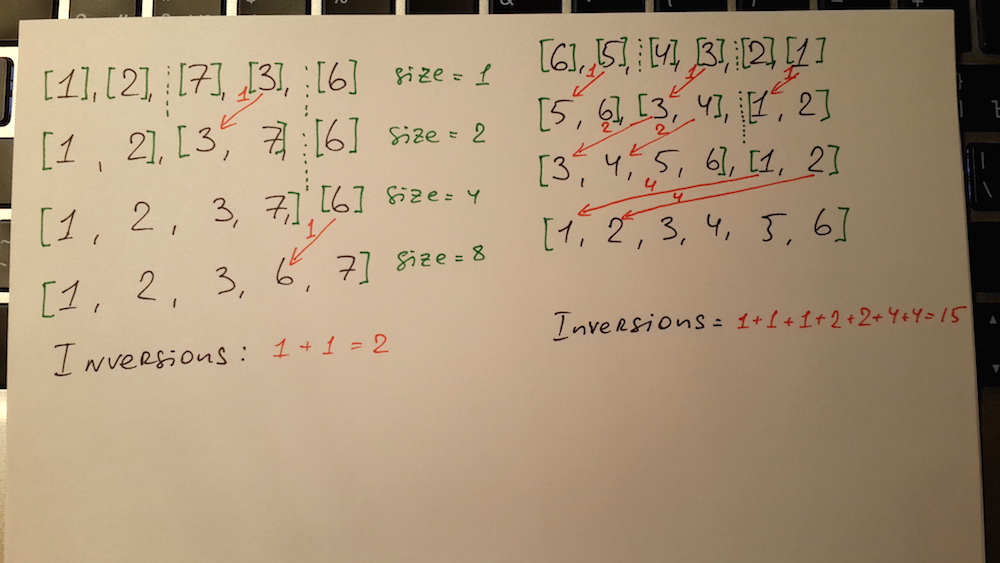 [1], [2], [7], [3], [6] size = 1
1
[1, 2], [3, 7], [6] size = 2
[1, 2, 3, 7,] [6] size = 4
1
[1, 2, 3, 6, 7] size = 8
Inversions: 1 + 1 = 2
[6], [5], [4], [3], [2], [1]
1 1 1
[5, 6], [3, 4], [1, 2]
2 2
[3, 4, 5, 6], [1, 2]
4 4
[1, 2, 3, 4, 5, 6]
Inversions = 1+1+1+2+2+4+4=15